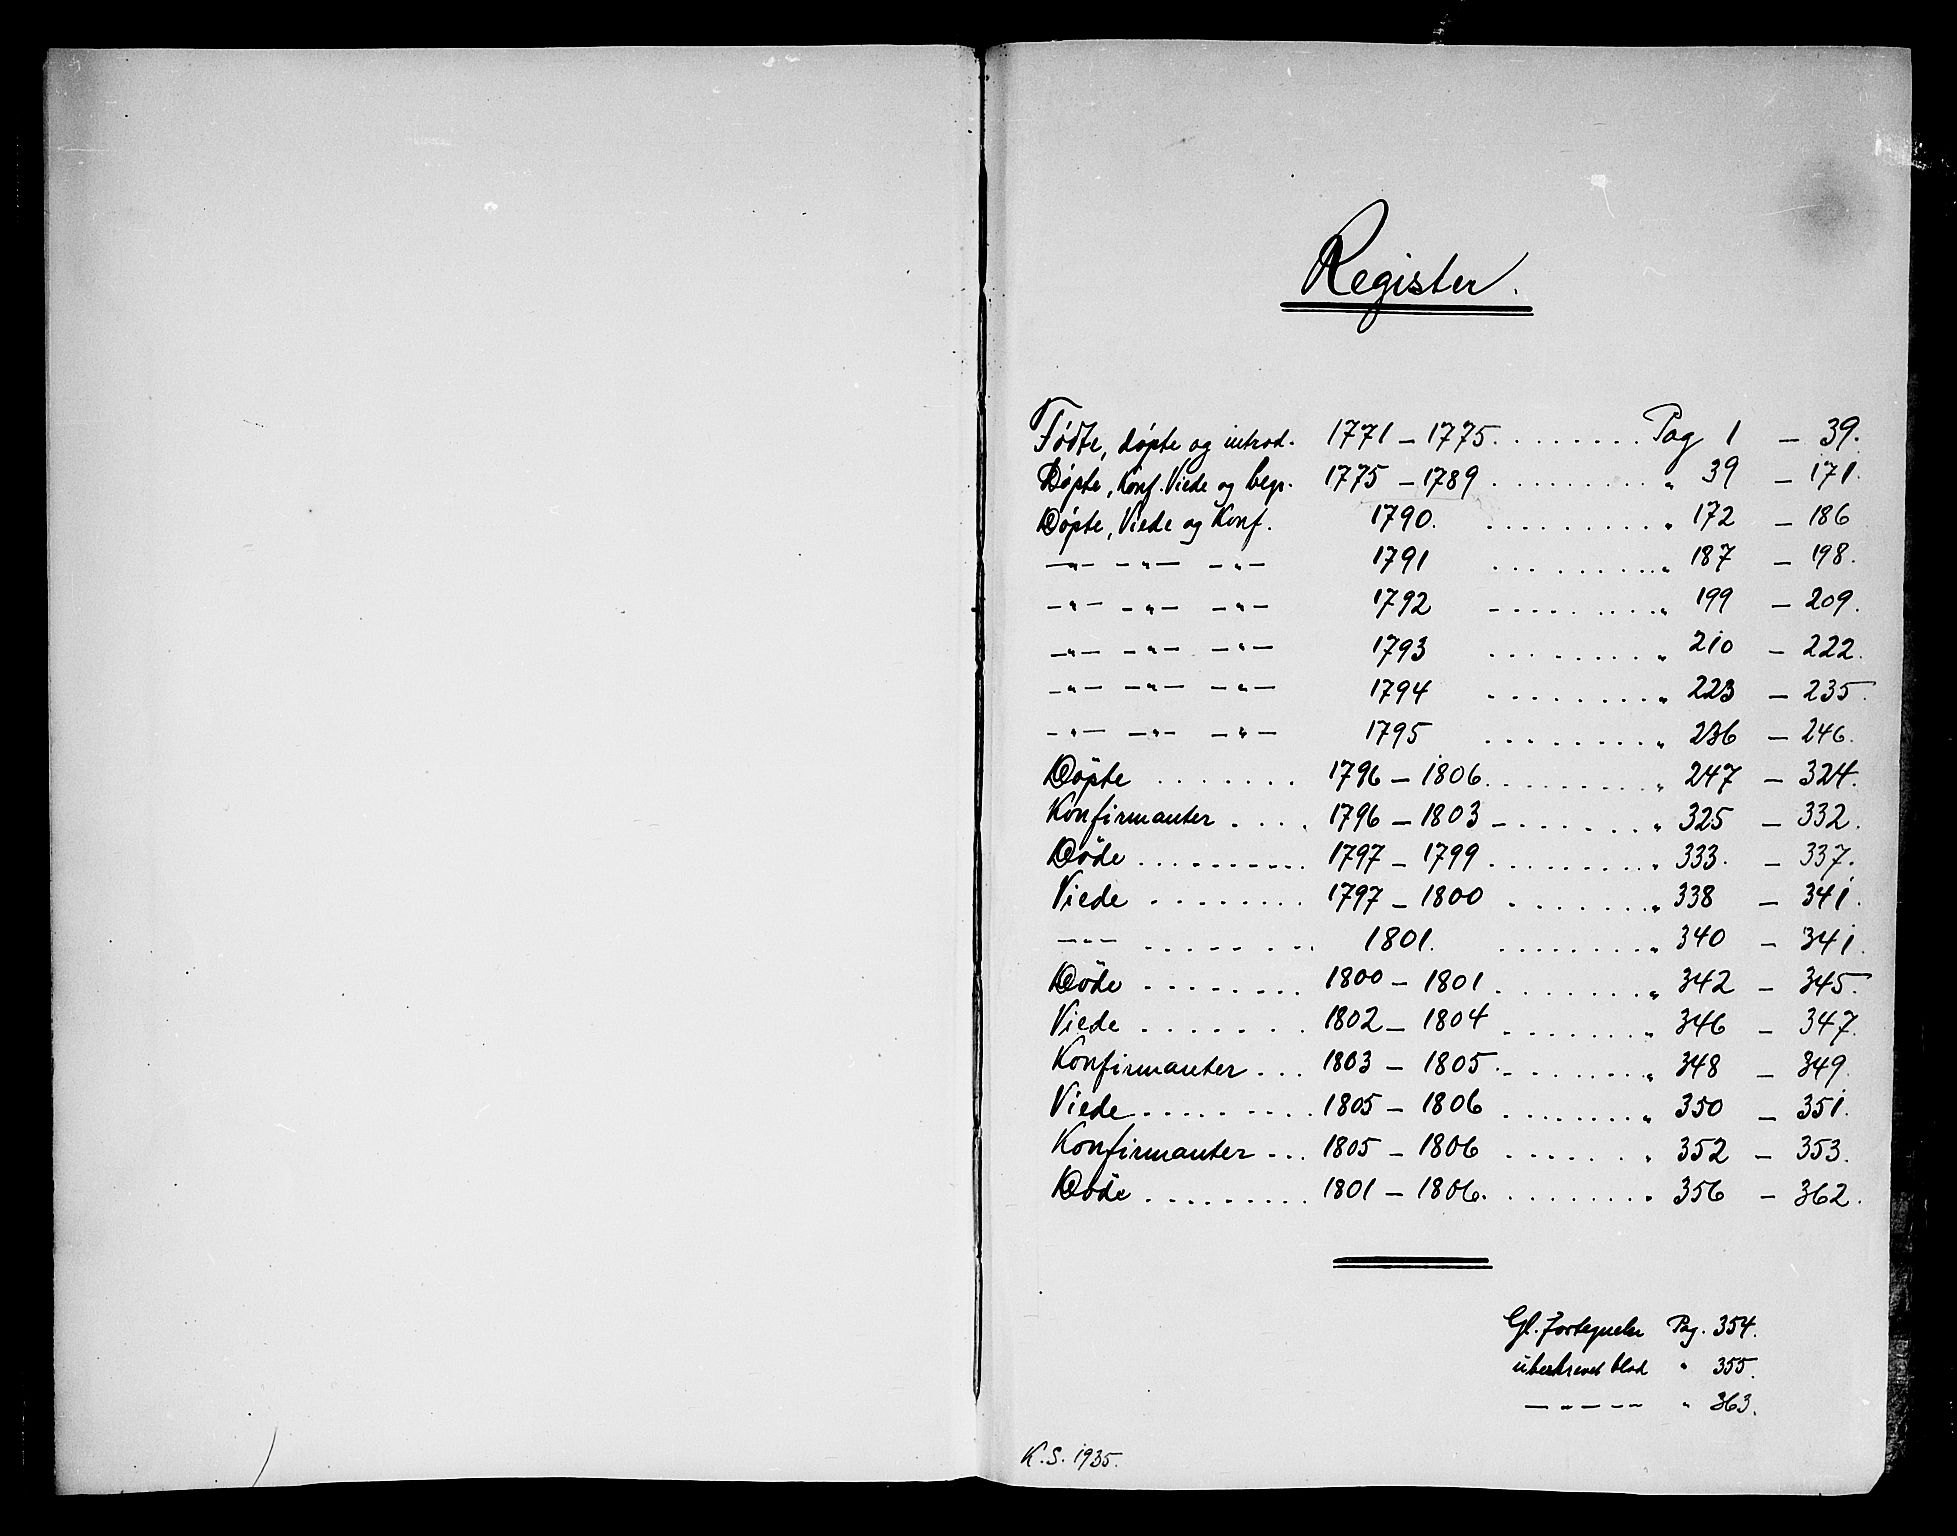 Register.
Fødte, døpte og introd. 1771 – 1775. . . . . . . . . Pag 1 – 39.
Døpte, Konf. Viede og begr. 1775 – 1789 . . . . . . . . . " 39 – 171.
Døpte, Viede og Konf. 1790. . . . . . . . . . " 172 – 186
—"— —"— —"— 1791 . . . . . . . . . " 187 – 198.
—"— —"— —"— 1792 . . . . . . . . . " 199 – 209.
—"— —"— —"— 1793 . . . . . . . . . " 210 – 222.
—"— —"— —"— 1794 . . . . . . . . . " 223 – 235.
—"— —"— —"— 1795 . . . . . . . . . " 236 – 246.
Døpte . . . . . . . 1796 – 1806. . . . . . . . . " 247 – 324.
Konfirmanter . . . . 1796 – 1803 . . . . . . . . " 325 – 332.
Døde . . . . . . . . . 1797 – 1799 . . . . . . . . . " 333. – 337.
Viede . . . . . . . . 1797 – 1800 . . . . . . . . " 338 – 341.
—"— . . . . . . . . 1801. . . . . . . . . " 340 – 341.
Døde . . . . . . . . 1800 – 1801 . . . . . . . . " 342 – 345.
Viede . . . . . . . . 1802 – 1804 . . . . . . . . " 346 – 347.
Konfirmanter . . . 1803 – 1805 . . . . . . . . " 348 – 349.
Viede . . . . . . . . . 1805 – 1806 . . . . . . . . " 350 – 351.
Konfirmanter . . . 1805 – 1806 . . . . . . . " 352 – 353.
Døde . . . . . . . . . 1801 – 1806. . . . . . . . . " 356 – 362.
Gl. fortegnelse Pag. 354.
ubeskrevet blad " 355.
— – – – — " 363.
K. S. 1935.